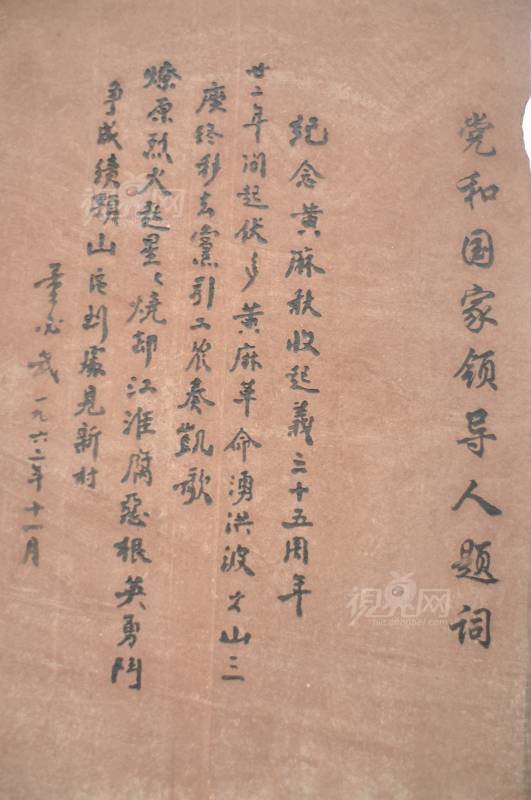 党和国家领导人题词
纪念黄麻秋收起義三十五周年
廿二年间起伏多黄麻革命湧洪波大山三
座终移去黨引工农奏凱歌
燎原烈火起星〻燒却江淮腐惡根英勇鬥
争成绩顯山区到處見新村
董必武一九六二年十一月